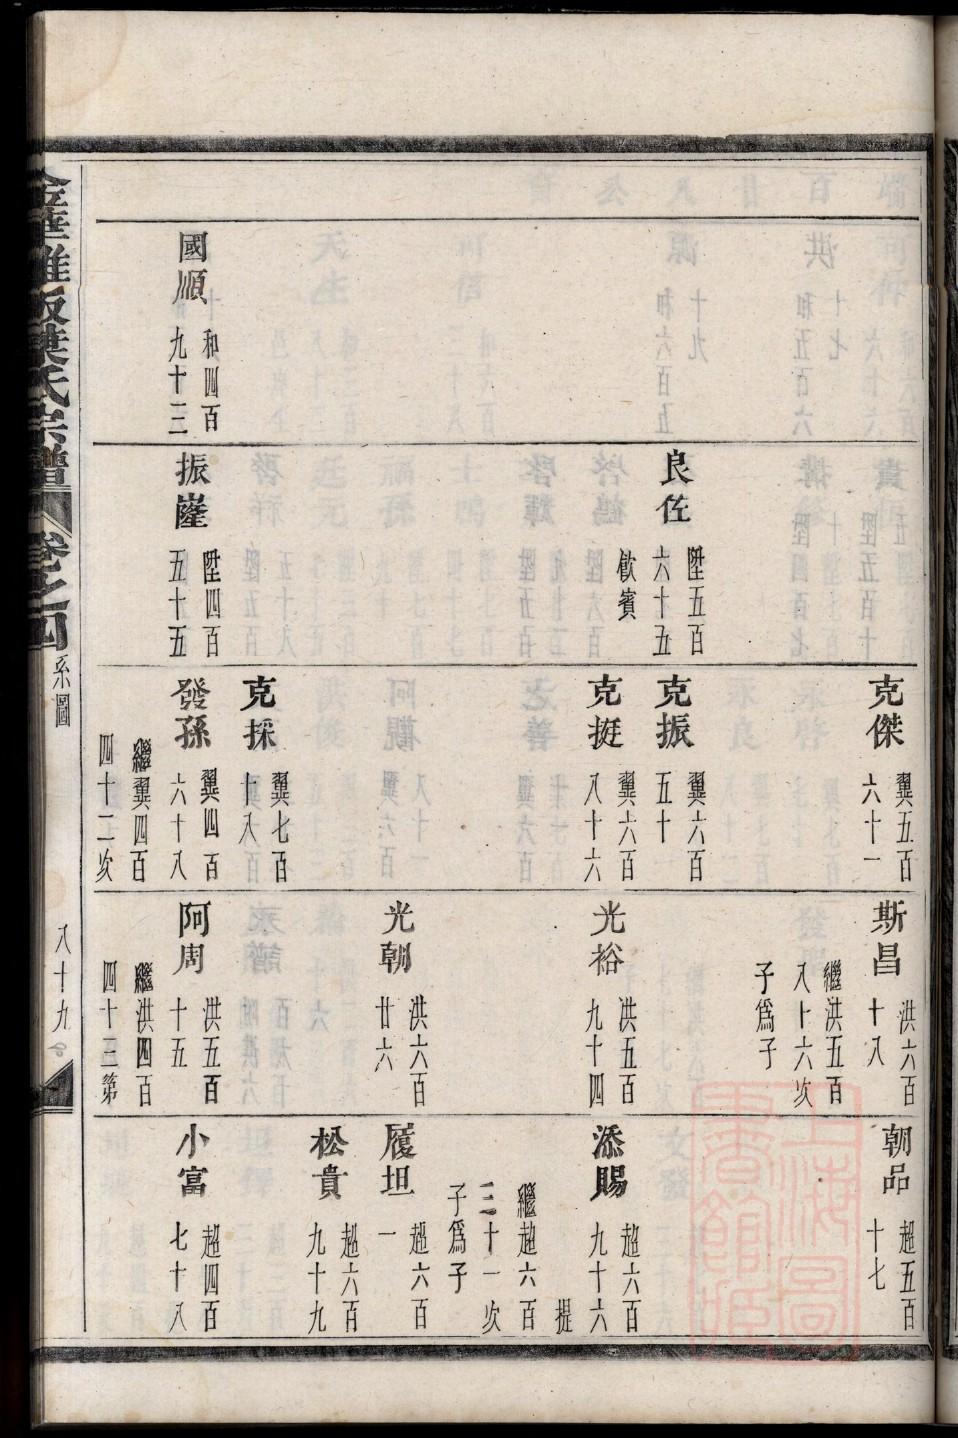 國順 和四百九十三
良佐 陞五百六十五 飲賓
振嶐 陞四百五十五
克傑 翼五百六十一
克振 翼六百五十
克挺 翼六百八十六
克採 翼七百十八
發孫 翼四百六十八
繼翼四百四十二次
斯昌 洪六百十八
繼洪五百八十六次子為子
光裕 洪五百九十四
光朝 洪六百廿六
阿周 洪五百十五
繼洪四百四十三第
朝品 超五百十七
添賜 超六百九十六 提
繼超六百三十一次子為子
履坦 超六百一
松貴 超六百九十九
小富 超四百七十八
葉氏宗譜 卷之四 系圖 八十九
上海圖書館